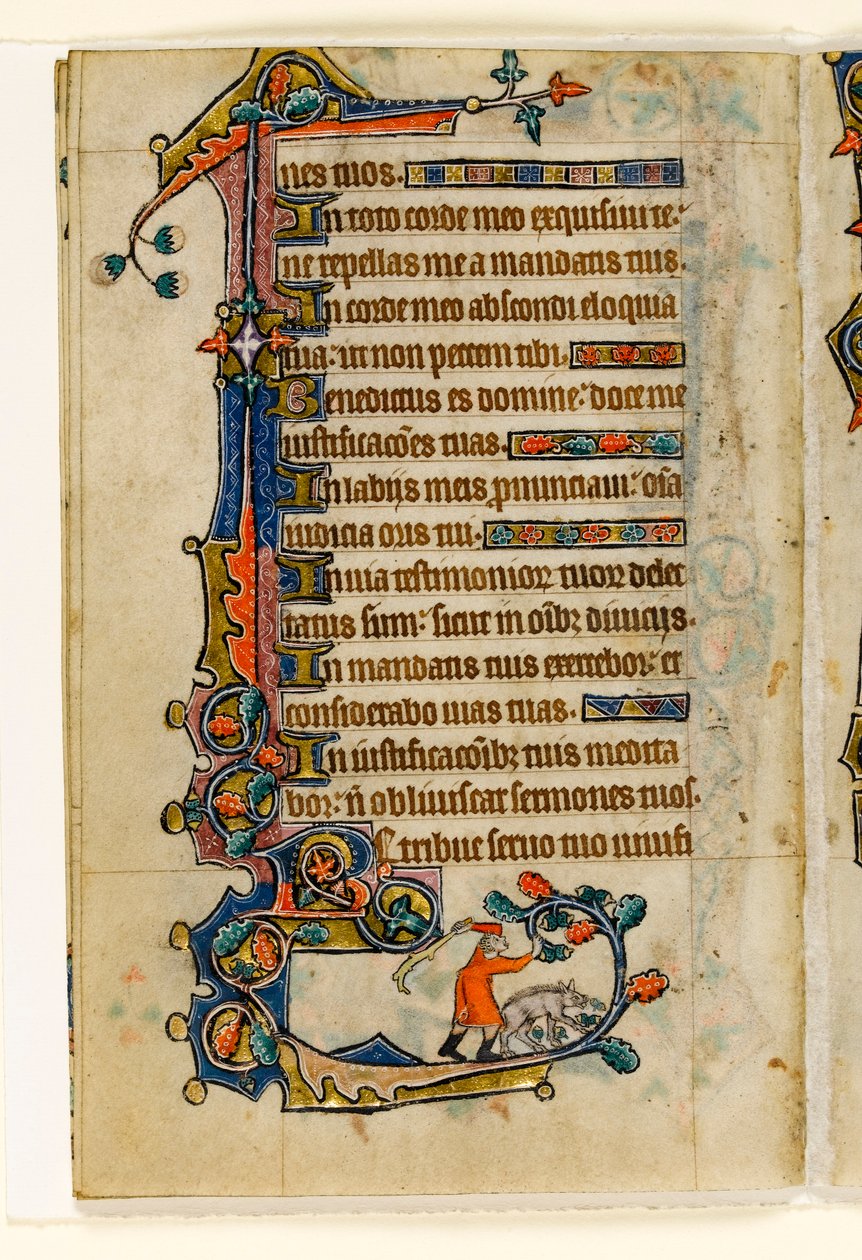 nes tuos.
In toto corde meo exquisiui te:
ne repellas me a mandatis tuis.
In corde meo abscondi eloquia
tua: ut non peccem tibi.
Benedictus es domine: doce me
iustificacōes tuas.
In labijs meis ꝓnunciaui: oīa
iudicia oris tui.
In uia testimonioꝝ tuoꝝ delec
tatus sum: sicut in oībꝫ diuicijs.
In mandatis tuis exercebor: et
considerabo uias tuas.
In iustificacōibꝫ tuis medita
bor: n̄ obliuiscar sermones tuos.
Retribue seruo tuo uiuifi